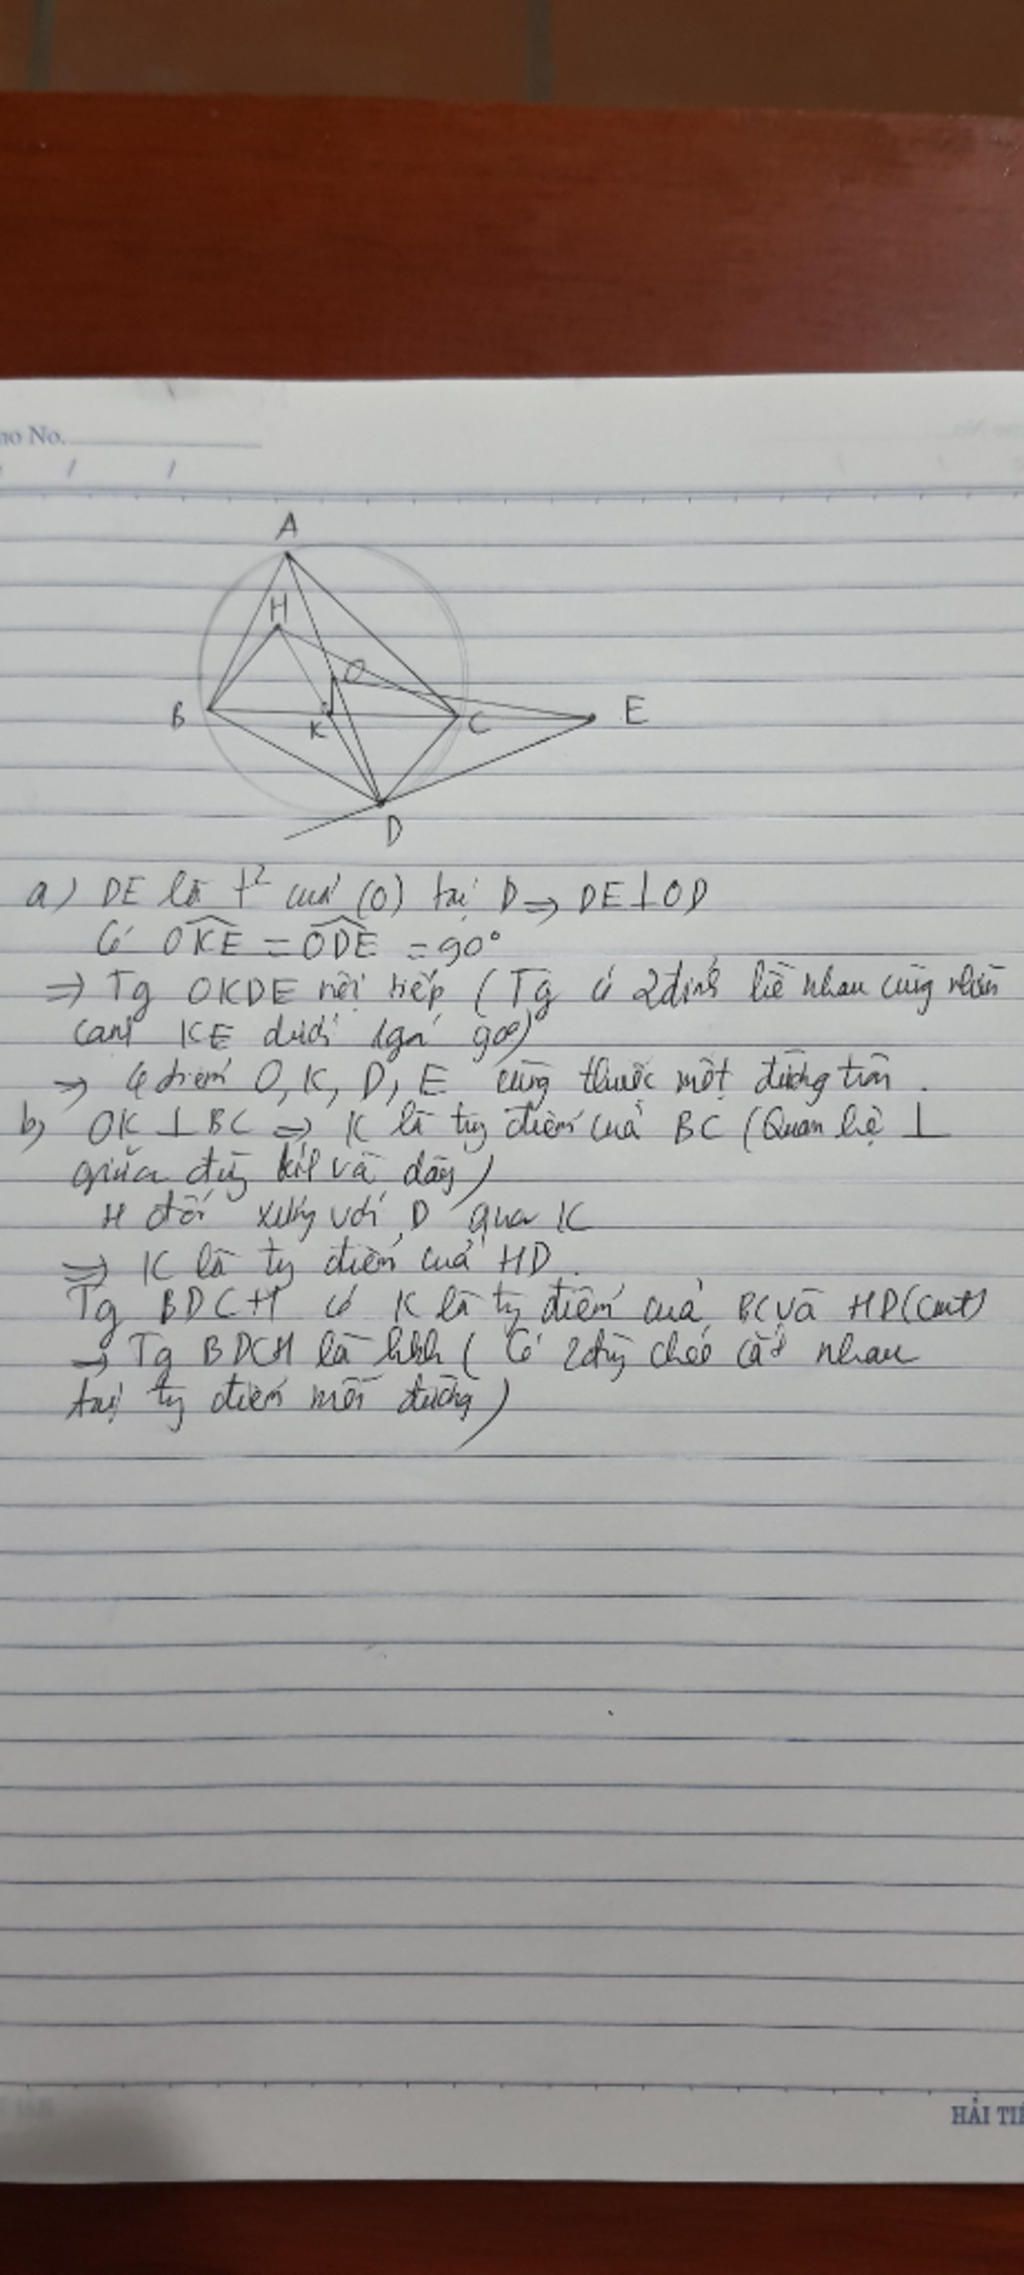 no No.
/ /
A
H
O
B
K
C
E
D
a) DE là t² cuả (O) tại D => DE⊥OD
Có OKE = ODE = 90°
=> Tg OKDE nội tiếp (Tg có 2 đỉnh liề nhau cùng nhìn
cạnh KE dưới 1góc 90°)
=> 4 điểm O, K, D, E cùng thuộc một đường tròn.
b) OK ⊥ BC => K là tg điểm cuả BC (Quan hệ ⊥
giữa đg kíh và dây)
H đối xứng với D qua K
=> K là tg điểm cuả HD.
Tg BDCH có K là tg điểm cuả BC và HD(cmt)
=> Tg BDCH là hbh (Có 2đg chéo cắt nhau
tại tg điểm mỗi đường)
HẢI TIẾ